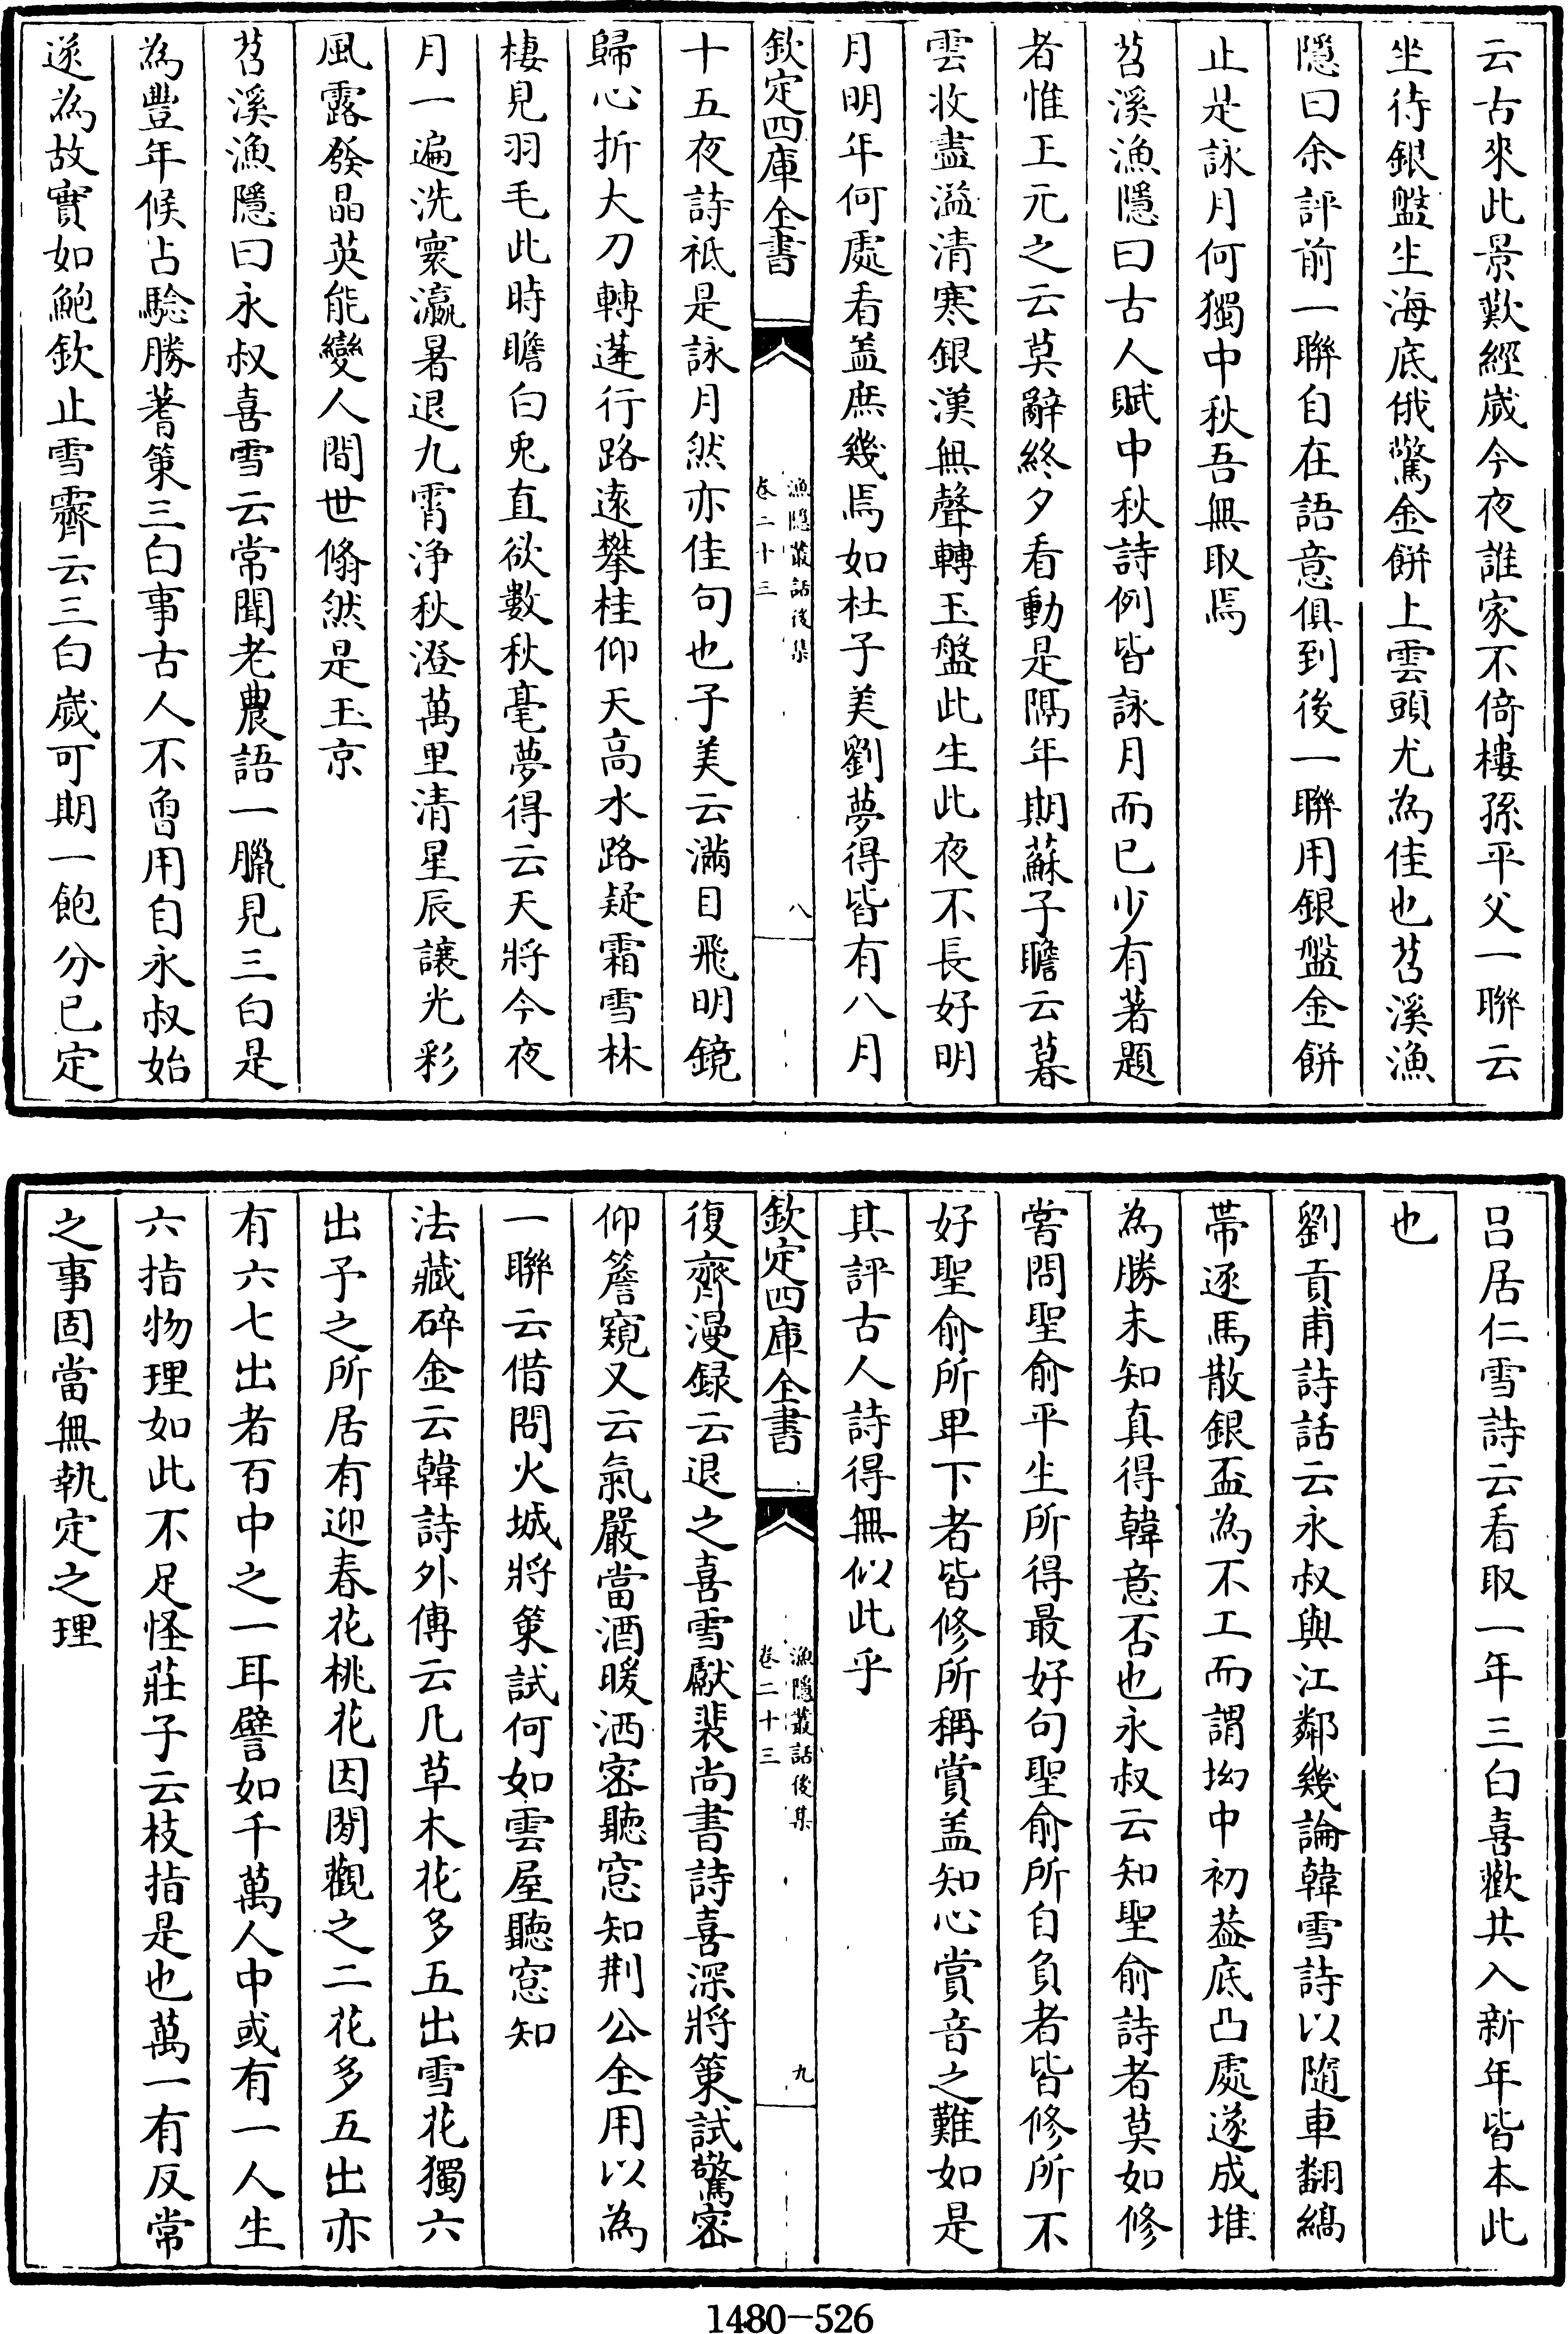 云古來此景歎經歲今夜誰家不倚樓孫平父一聯云
坐待銀盤生海底俄驚金餅上雲頭尤為佳也苕溪漁
隱曰余評前一聯自在語意俱到後一聯用銀盤金餅
止是詠月何獨中秋吾無取焉
苕溪漁隱曰古人賦中秋詩例皆詠月而已少有著題
者惟王元之云莫辭終夕看動是隔年期蘇子瞻云暮
雲收盡溢清寒銀漢無聲轉玉盤此生此夜不長好明
月明年何處看盖庶幾焉如杜子美劉夢得皆有八月
欽定四庫全書
漁隱叢話後集
卷二十三
八
十五夜詩祇是詠月然亦佳句也子美云滿目飛明鏡
歸心折大刀轉蓬行路遠攀桂仰天高水路疑霜雪林
棲見羽毛此時瞻白兎直欲數秋毫夢得云天將今夜
月一遍洗寰瀛暑退九霄淨秋澄萬里清星辰讓光彩
風露發晶英能變人間世翛然是玉京
苕溪漁隱曰永叔喜雪云常聞老農語一臘見三白是
為豐年候占騐勝蓍策三白事古人不曾用自永叔始
遂為故實如鮑欽止雪霽云三白歲可期一飽分已定
呂居仁雪詩云看取一年三白喜歡共入新年皆本此
也
劉貢甫詩話云永叔與江鄰幾論韓雪詩以隨車翻縞
帶逐馬散銀盃為不工而謂坳中初葢底凸處遂成堆
為勝未知真得韓意否也永叔云知聖俞詩者莫如修
嘗問聖俞平生所得最好句聖俞所自負者皆修所不
好聖俞所卑下者皆修所稱賞盖知心賞音之難如是
其評古人詩得無似此乎
欽定四庫全書
漁隱叢話後集
卷二十三
九
復齋漫録云退之喜雪獻裴尚書詩喜深將策試驚密
仰簷窺又云氣嚴當酒暖洒密聽窓知荆公全用以為
一聯云借問火城將策試何如雲屋聽窓知
法藏碎金云韓詩外傳云凡草木花多五出雪花獨六
出予之所居有迎春花桃花因閒觀之二花多五出亦
有六七出者百中之一耳譬如千萬人中或有一人生
六指物理如此不足怪莊子云枝指是也萬一有反常
之事固當無執定之理
1480-526